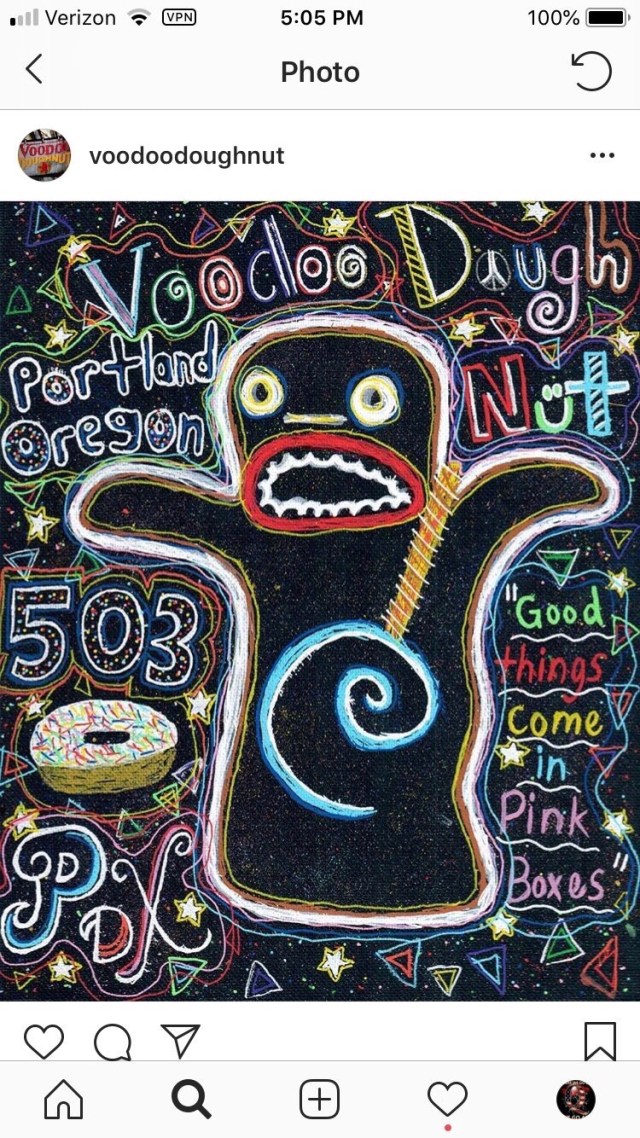 Verizon VPN 5:05 PM 100%
Photo
VOODOO
DOUGHNUT
voodoodoughnut
Voodoo Dough
Nüt
Portland
Oregon
503
PDX
"Good
things
Come
in
Pink
Boxes"